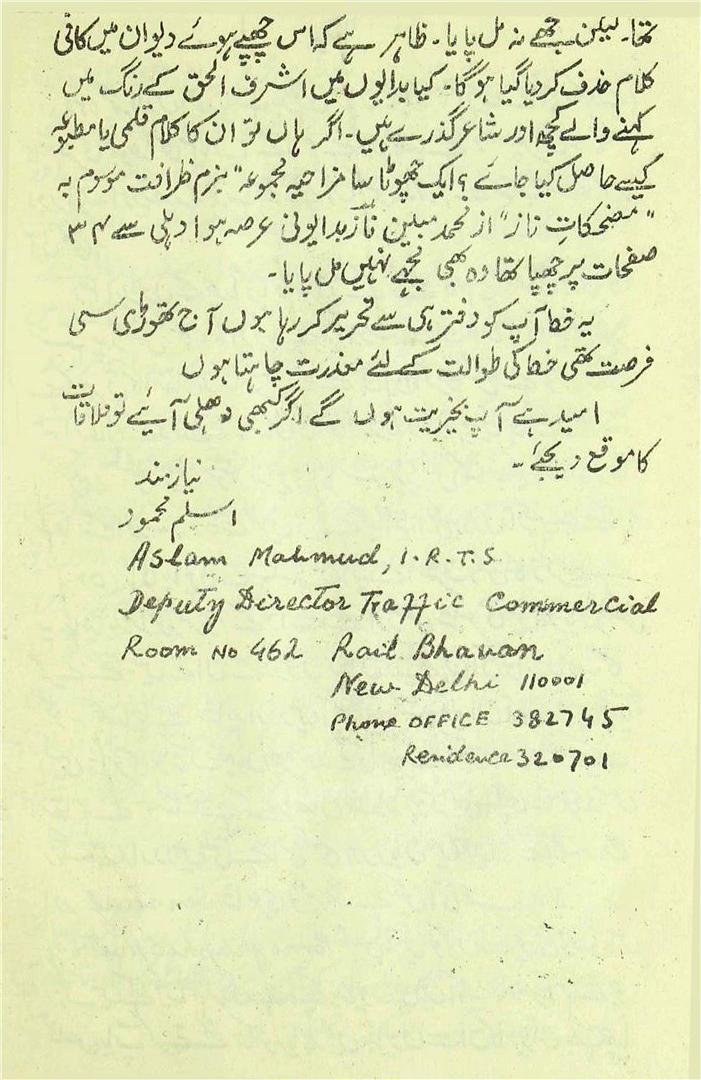 تھا۔ لیکن مجھے نہ مل پایا۔ ظاہر ہے کہ اس چھپے ہوئے دیوان میں کافی
کلام حذف کر دیا گیا ہوگا۔ کیا بدایوں میں اشرف الحق کے رنگ میں
کہنے والے کچھ اور شاعر گذرے ہیں۔ اگر ہاں تو ان کا کلام قلمی یا مطبوعہ
کیسے حاصل کیا جائے؟ ایک چھوٹا سا مزاحیہ مجموعہ "بزم ظرافت موسوم بہ
"مضحکاتِ ناز" از محمد مبین نازؔ بدایونی عرصہ ہوا دہلی سے ۳۴
صفحات پر چھپا تھا وہ بھی مجھے نہیں مل پایا۔
یہ خط آپ کو دفتر ہی سے تحریر کر رہا ہوں آج تھوڑی سی
فرصت تھی خط کی طوالت کے لئے معذرت چاہتا ہوں
امید ہے آپ بخیریت ہوں گے اگر کبھی دہلی آیئے تو ملاقات
کا موقع دیجئے۔
نیازمند
اسلم محمود
Aslam Mahmud, I.R.T.S
Deputy Director Traffic Commercial
Room No 462 Rail Bhavan
New Delhi 110001
Phone OFFICE 382745
Residence 320701